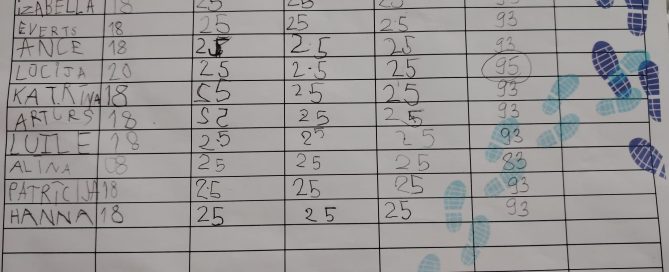 IZABELLA 18 25 25 25 93
EVERTS 18 25 25 25 93
ANCE 18 25 25 25 93
LŪCIJA 20 25 25 25 95
KATRĪNA 18 25 25 25 93
ARTURS 18 25 25 25 93
LUĪLE 18 25 25 25 93
ALINA 08 25 25 25 83
PATRĪCIJA 18 25 25 25 93
HANNA 18 25 25 25 93